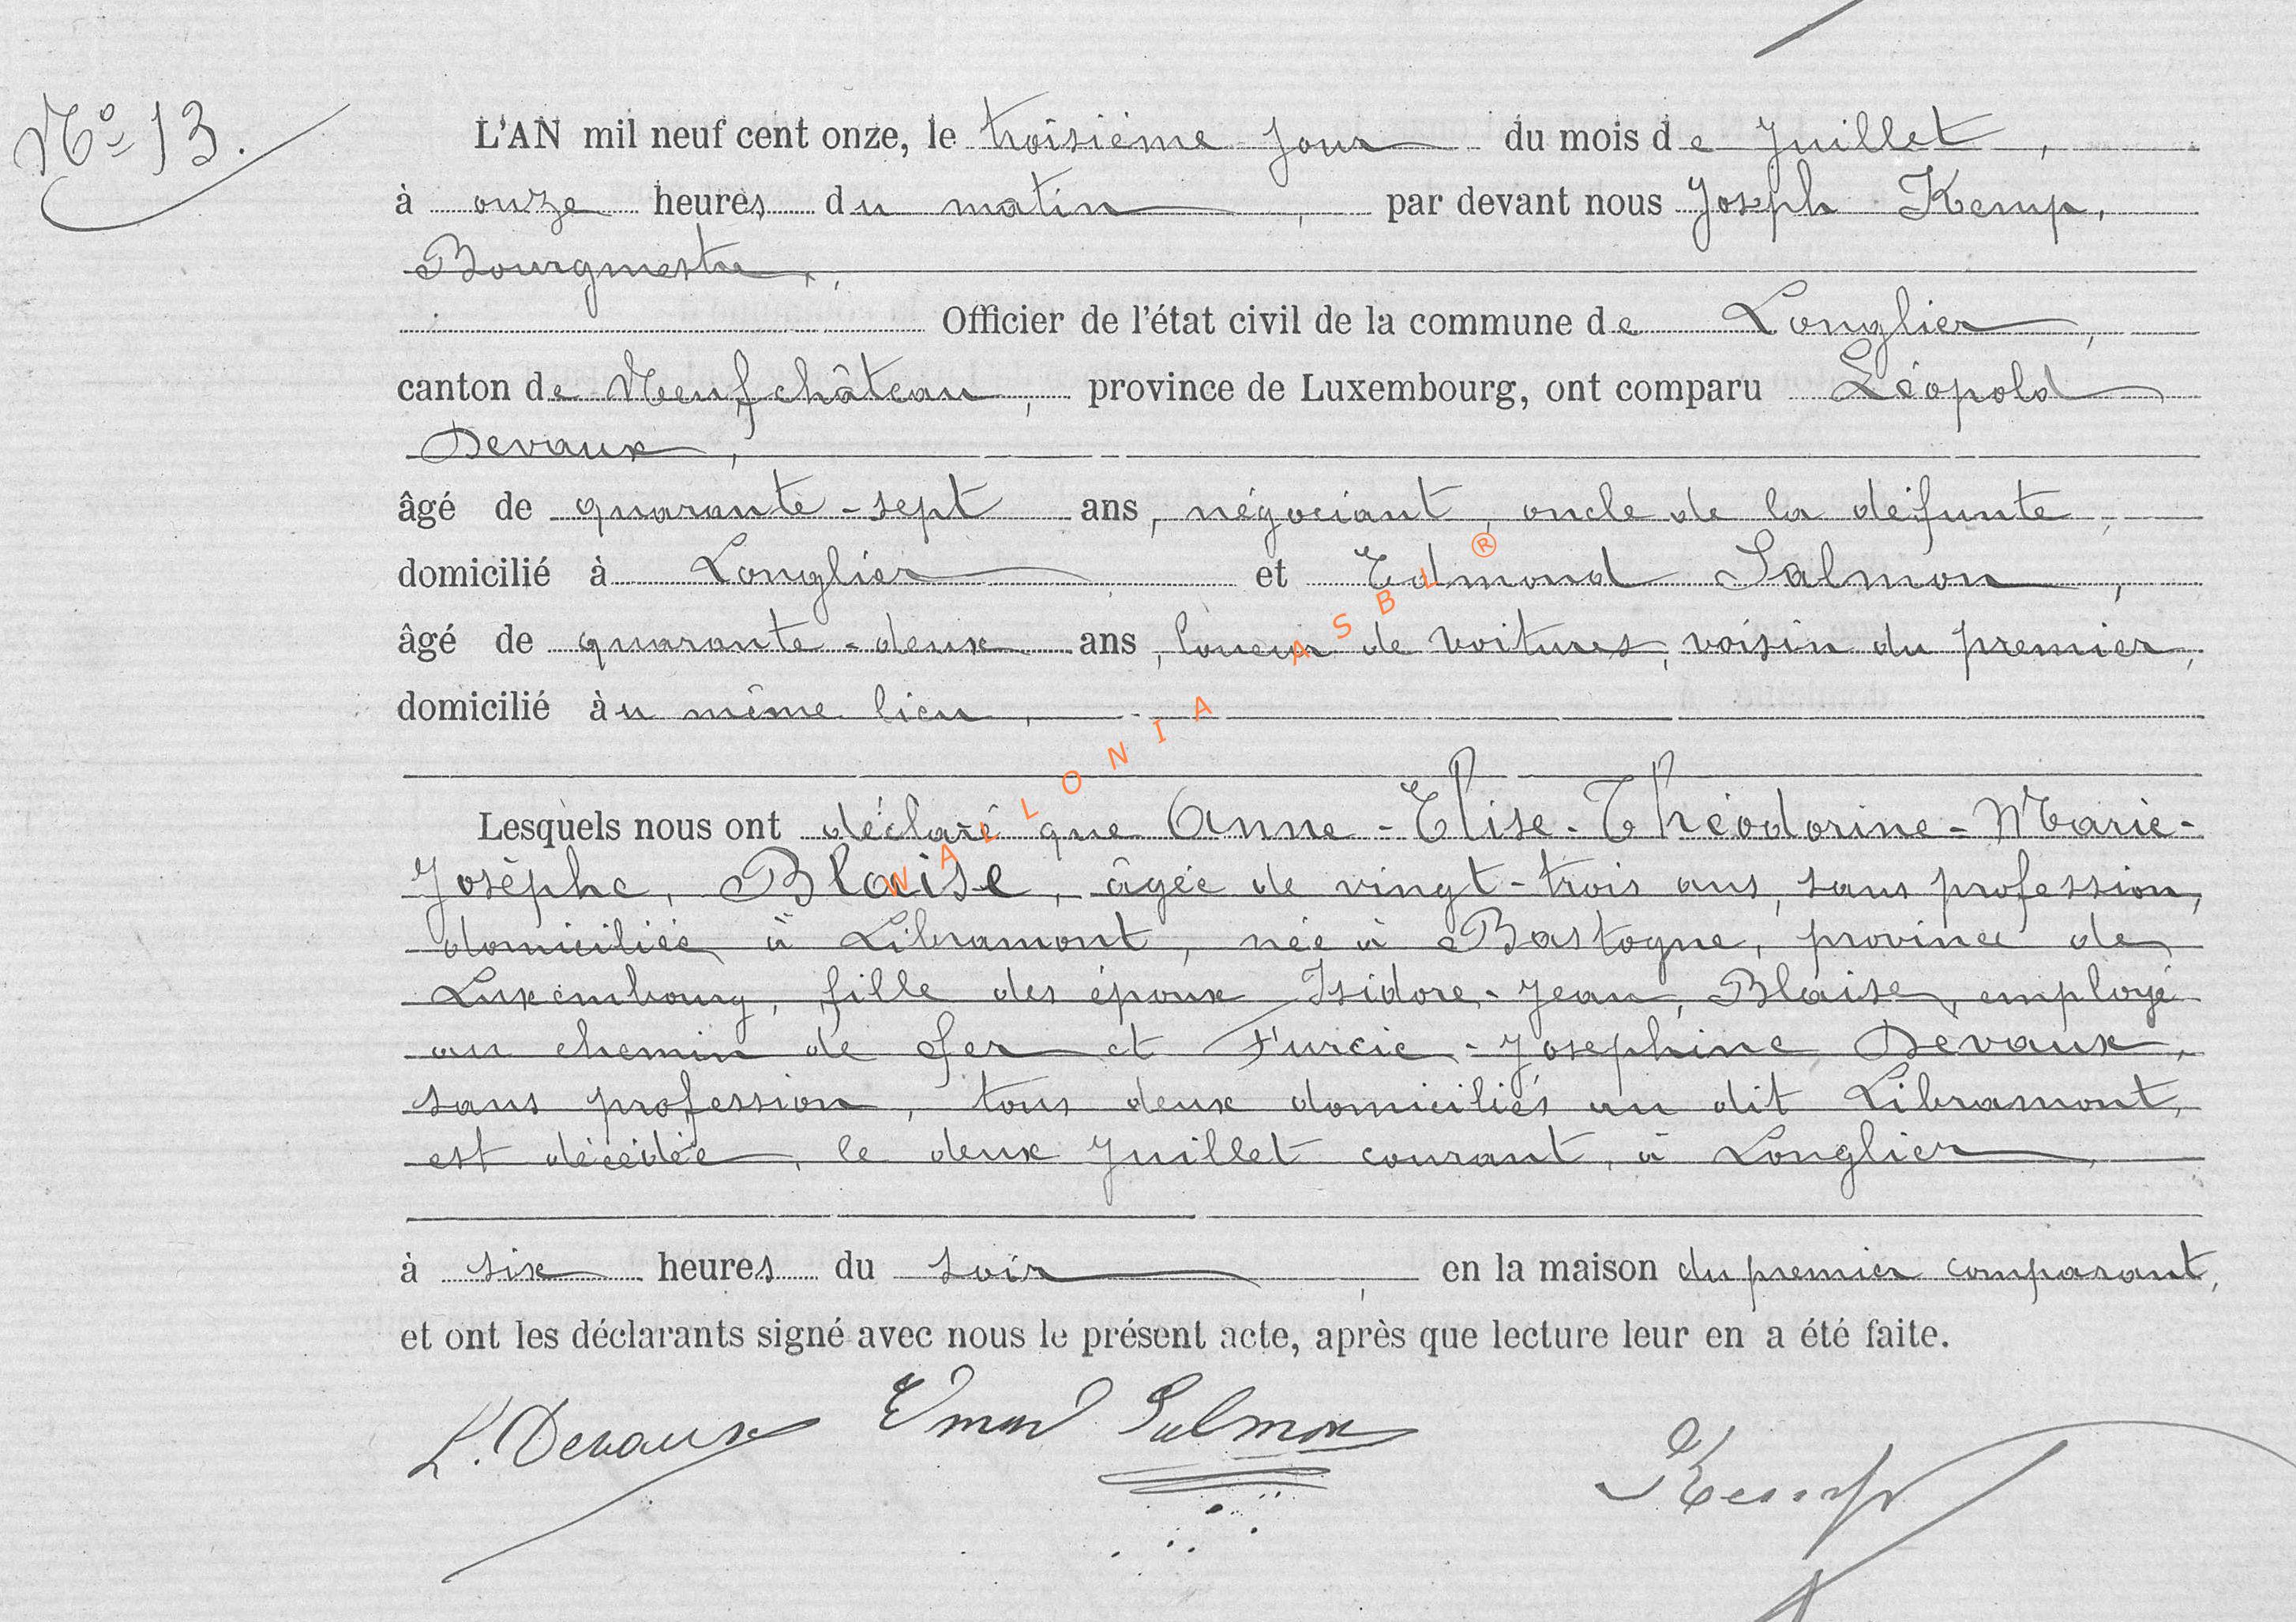 Nº 13.
L'AN mil neuf cent onze, le troisième jour du mois de Juillet,
à onze heures du matin, par devant nous Joseph Kemp,
Bourgmestre,
Officier de l'état civil de la commune de Longlier,
canton de Neufchâteau, province de Luxembourg, ont comparu Léopold
Devaux,
âgé de quarante-sept ans, négociant, oncle de la défunte,
domicilié à Longlier, et Edmond Salmon,
âgé de quarante-deux ans, loueur de voitures, voisin du premier,
domicilié au même lieu,
Lesquels nous ont déclaré que Anne-Elise-Théodorine-Marie-
Josèphe, Blaise, âgée de vingt-trois ans, sans profession,
domiciliée à Libramont, née à Bastogne, province de
Luxembourg, fille des époux Isidore-Jean, Blaise, employé
au chemin de fer et Furcie-Josephine Devaux,
sans profession, tous deux domiciliés au dit Libramont,
est décédée, le deux Juillet courant, à Longlier,
à six heures du soir, en la maison du premier comparant,
et ont les déclarants signé avec nous le présent acte, après que lecture leur en a été faite.
L. Devaux Emond Salmon Kemp
WALLONIA ASBL ®